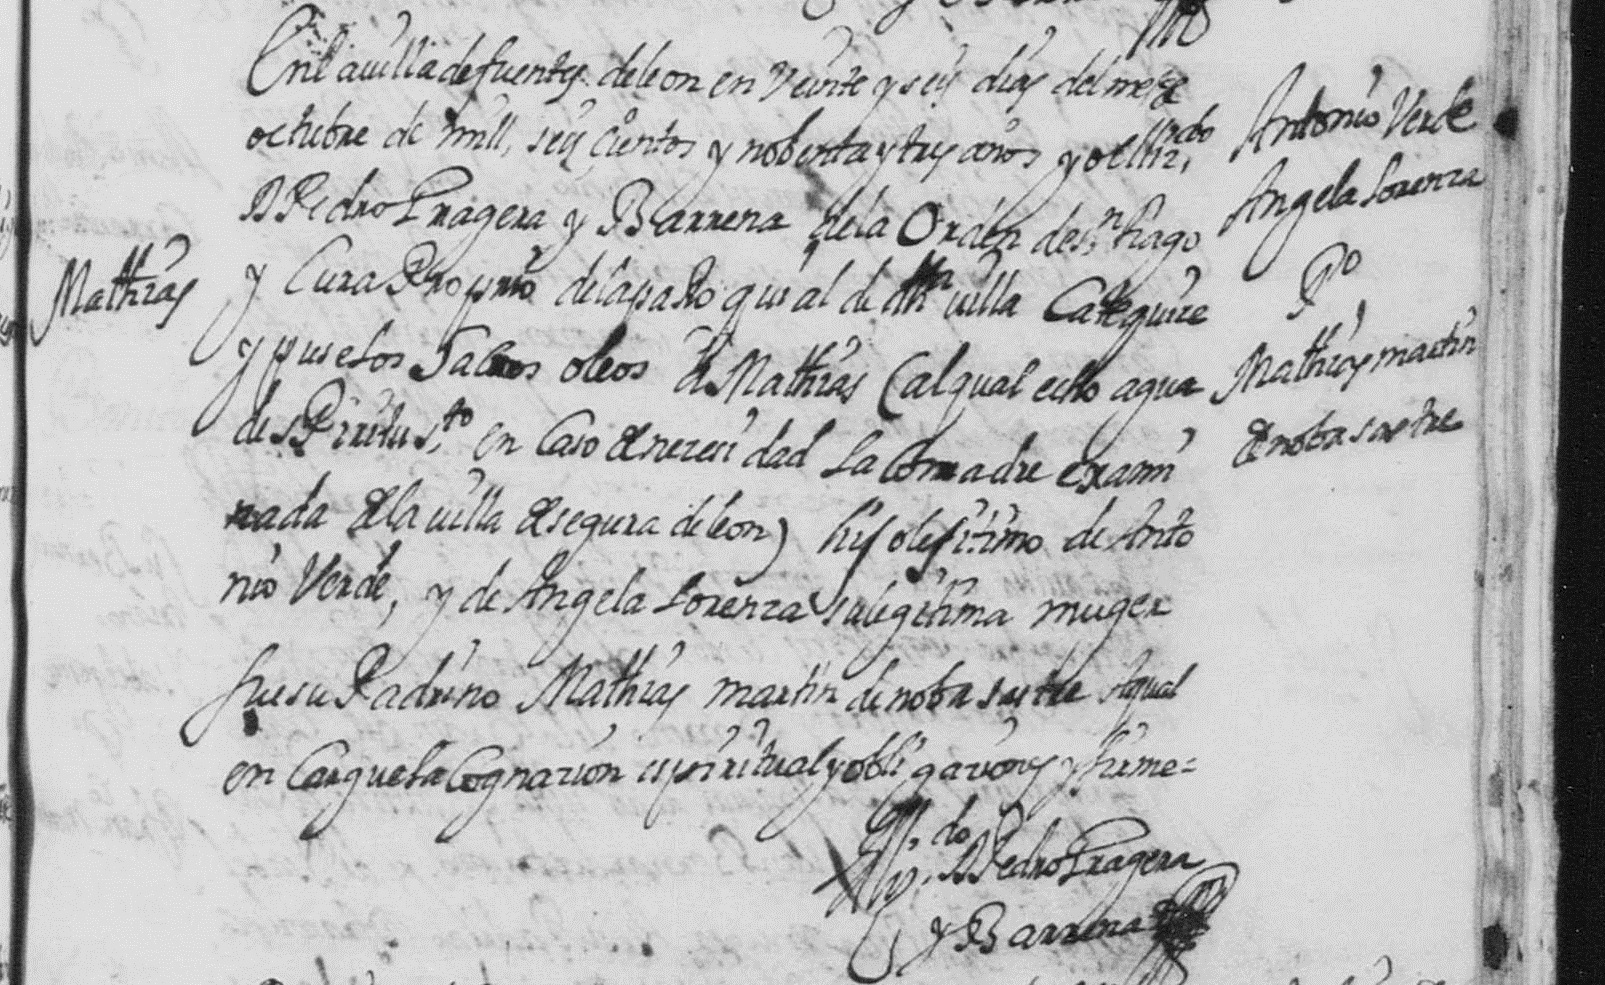 Mathias
En la uilla de fuentes de leon en Veinte y seis dias del mes de
octubre de mill, seis cientos y nobenta y tres años yo el liz.do
D Pedro Tragera y Barrena de la Orden de s.n tiago
y Cura Proprio de la parroquial de dha uilla Catequize
y puse los Sacros oleos a Mathias (al qual echo agua
de sPiritu s.to en Caso de necesidad la Comadre exami
nada de la uilla de segura de leon) hijo lejitimo de Anto
nio Verde, y de Angela Lorenza su legitima muger
fue su Padrino Mathias martin de noba sastre Aqual
en Cargue la Cognacion espiritual y obligaciones y firme =
L.do D Pedro Tragera
y Barrena
Antonio Verde
Angela Lorenza
P.o
Mathias martin
de noba sastre